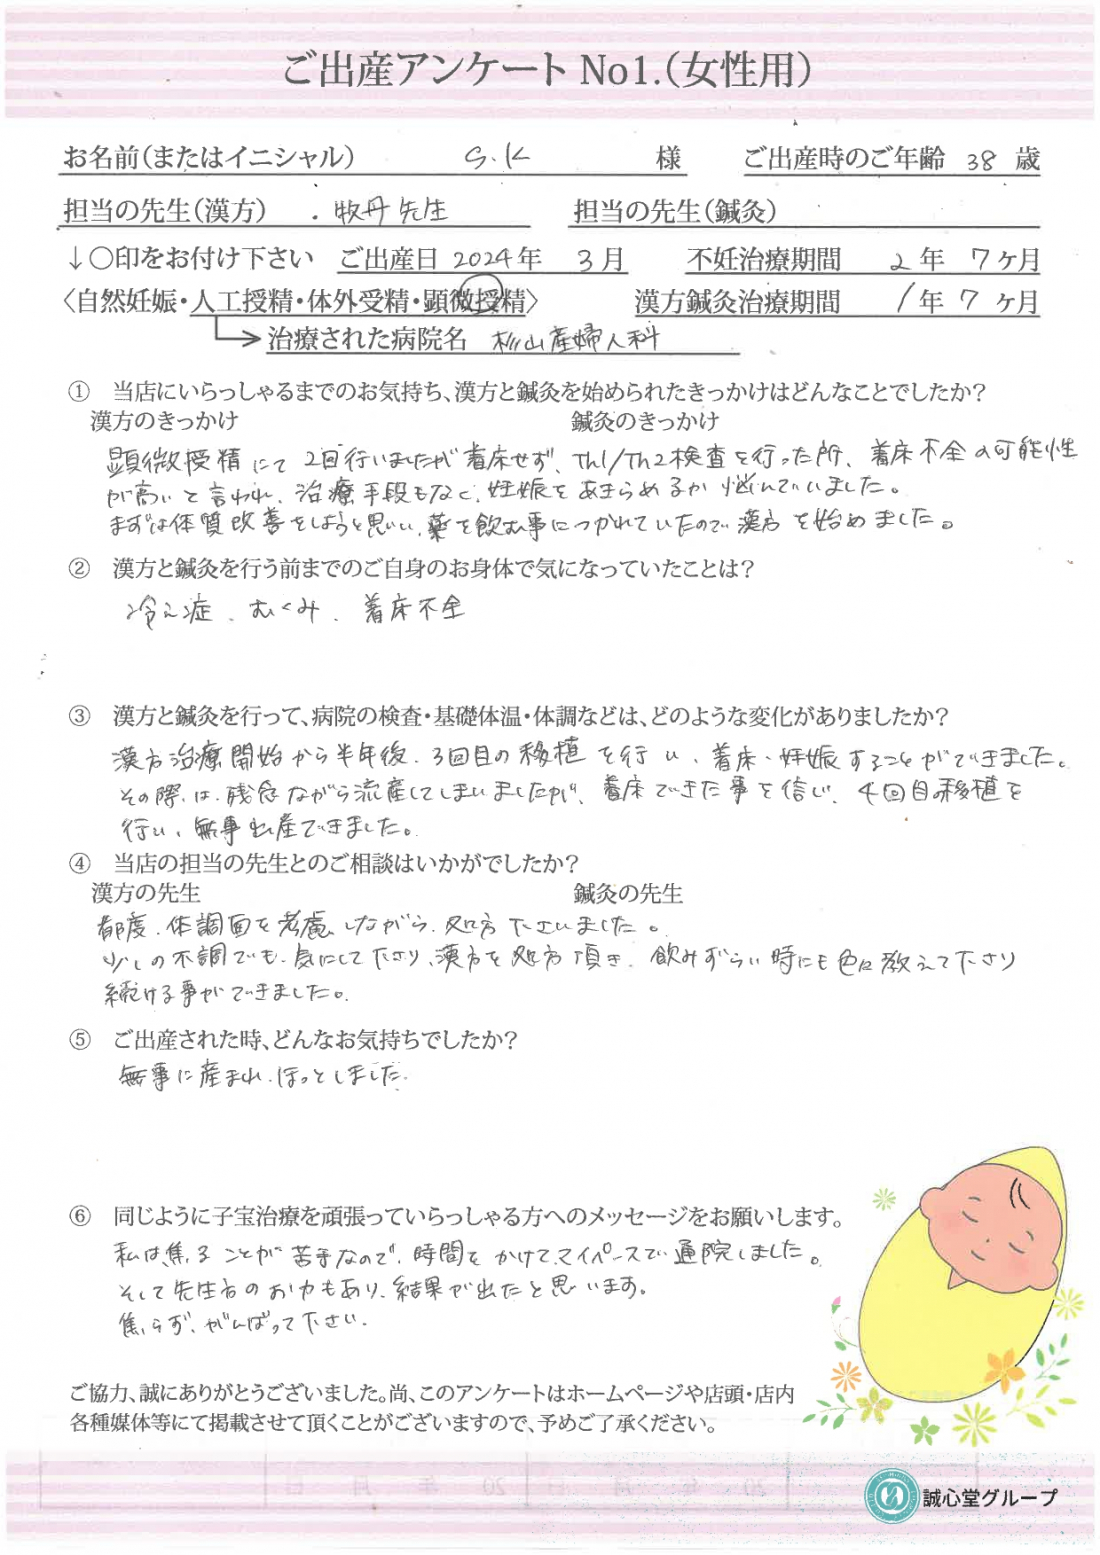 ご出産アンケート No1.(女性用)
お名前(またはイニシャル) S.K 様 ご出産時のご年齢 38 歳
担当の先生(漢方) . 牧丹先生 担当の先生(鍼灸)
↓○印をお付け下さい ご出産日 2024年 3月 不妊治療期間 2年 7ヶ月
〈自然妊娠・人工授精・体外受精・顕微授精〉 漢方鍼灸治療期間 1年 7ヶ月
治療された病院名 杉山産婦人科
① 当店にいらっしゃるまでのお気持ち、漢方と鍼灸を始められたきっかけはどんなことでしたか?
漢方のきっかけ 鍼灸のきっかけ
顕微授精にて2回行いましたが着床せず、Th1/Th2検査を行った所、着床不全の可能性
が高いと言われ、治療手段もなく、妊娠をあきらめるか悩んでいました。
まずは体質改善をしようと思い、薬を飲む事につかれていたので漢方を始めました。
② 漢方と鍼灸を行う前までのご自身のお身体で気になっていたことは?
冷え症、むくみ、着床不全
③ 漢方と鍼灸を行って、病院の検査・基礎体温・体調などは、どのような変化がありましたか?
漢方治療開始から半年後、3回目の移植を行い、着床・妊娠することができました。
その際は、残念ながら流産してしまいましたが、着床できた事を信じ、4回目の移植を
行い、無事出産できました。
④ 当店の担当の先生とのご相談はいかがでしたか?
漢方の先生 鍼灸の先生
都度、体調面を考慮しながら、処方下さいました。
少しの不調でも、気にして下さり、漢方を処方頂き、飲みずらい時にも色々教えて下さり
続ける事ができました。
⑤ ご出産された時、どんなお気持ちでしたか?
無事に産まれ、ほっとしました。
⑥ 同じように子宝治療を頑張っていらっしゃる方へのメッセージをお願いします。
私は、焦ることが苦手なので、時間をかけてマイペースで通院しました。
そして先生方のお力もあり、結果が出たと思います。
焦らず、がんばって下さい。
ご協力、誠にありがとうございました。尚、このアンケートはホームページや店頭・店内
各種媒体等にて掲載させて頂くことがございますので、予めご了承ください。
誠心堂グループ